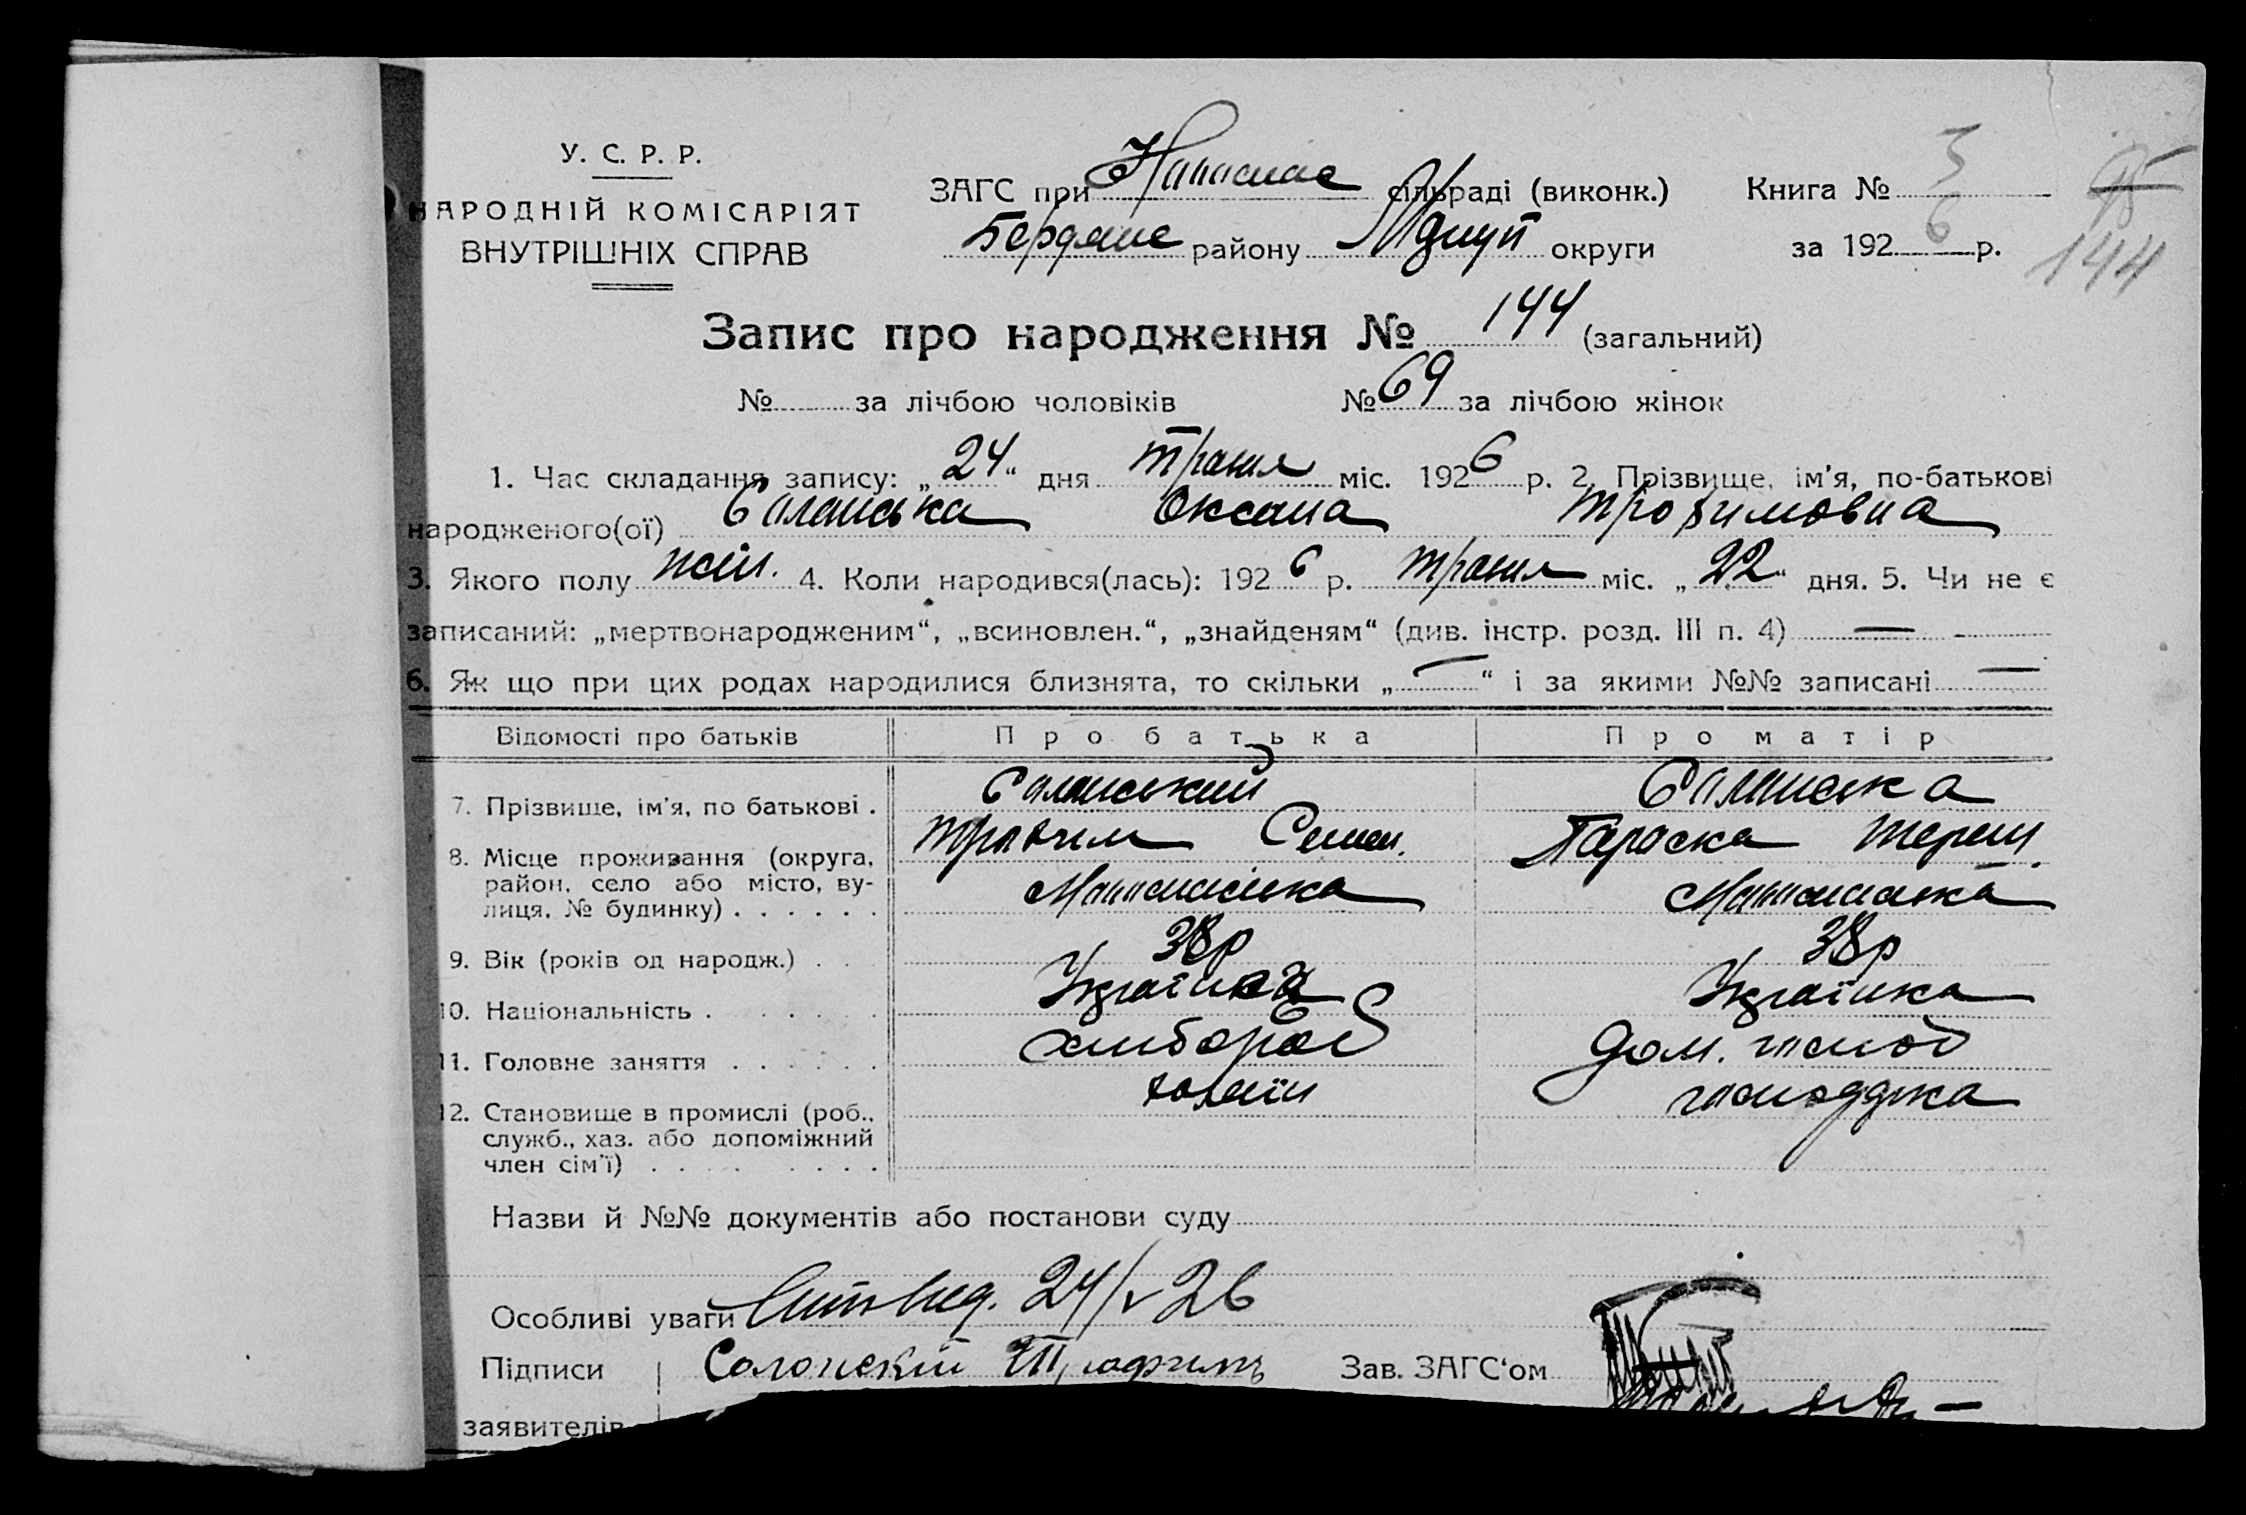 У. С. Р. Р.
НАРОДНІЙ КОМІСАРІЯТ
ВНУТРІШНІХ СПРАВ
ЗАГС при сільраді (виконк.) Книга № 3
95
района Мдиуп округи за 192 6 р.
144
Запис про народження № 144 (загальний)
№ за лічбою чоловіків № 69 за лічбою жінок
1. Час складання запису: „24“ дня травня міс. 1926 р. 2. Прізвище, ім’я, по-батькові
народженого(ої) Саланська Оксана Трохимовна
3. Якого полу жін. 4. Коли народився(лась): 1926 р. травня міс. „22“ дня. 5. Чи не є
записаний: „мертвонародженим“, „всиновлен.“, „знайденям“ (див. інстр. розд. III п. 4) —
6. Як що при цих родах народилися близнята, то скільки „—“ і за якими №№ записані —
Відомості про батьків Про батька Про матір
7. Прізвище, ім’я, по батькові . Саланський Саланська
Трохим Семен. Параска Терен.
8. Місце проживання (округа,
район, село або місто, ву-
лиця, № будинку) . . . . . .
9. Вік (років од народж.) . . 38р 38р
10. Національність . . . . . . Українка
11. Головне заняття . . . . . . хлібороб дом. господ
12. Становище в промислі (роб.,
служб., хаз. або допоміжний
член сім’ї) . . . . . . . . хозяїн
Назви й №№ документів або постанови суду
Особливі уваги 24/V 26
Підписи Солонскій Трофимъ Зав. ЗАГС‘ом
заявителів